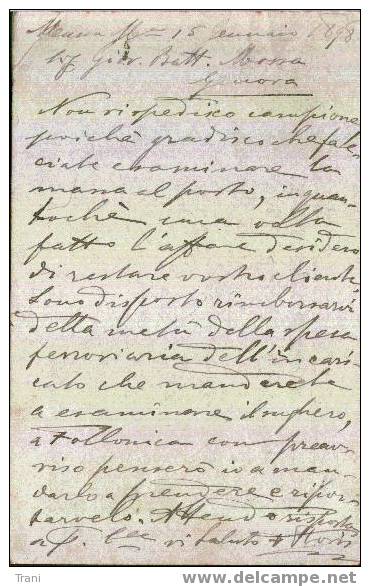 15 Gennaio 1898
Sig. Giov. Batt. Mossa
Genova
Non rispedisco campione
poichè gradisco che fac-
ciate esaminare la
massa al posto, inquan-
tochè una volta
fatto l'affare desidero
di restare vostro cliente
Sono disposto rimborsarvi
della metà della spesa
ferroviaria dell'incari-
cato che manderete
a esaminare il
a Follonica con preav-
viso penserò io a man-
darlo a prendere e ripor-
tarvelo. Attendo risposta
vi saluto
Trani
www.delcampe.net